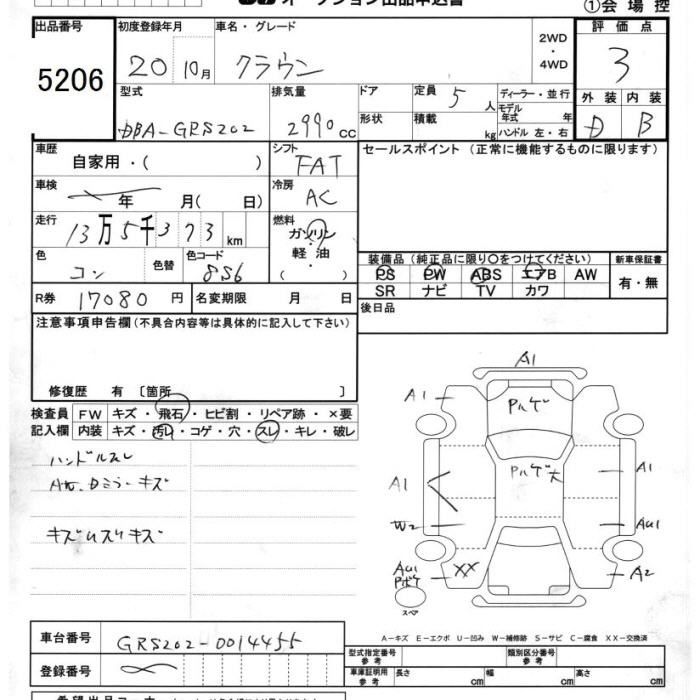 オークション出品申込書
①会場控
出品番号 初度登録年月 車名・グレード 2WD・4WD 評価点
5206 20 10月 クラウン 3
型式 排気量 ドア 定員 5人 ディーラー・並行 外装 内装
DBA-GRS202 2990cc 形状 積載 kg モデル年式 年 ハンドル 左・右 D B
車歴 自家用・( ) シフト FAT セールスポイント(正常に機能するものに限ります)
車検 年 月(日) 冷房 AC
走行 13万5千373km 燃料 ガソリン・軽油・( )
色 コン 色替 色コード 8S6
装備品(純正品に限り○をつけてください) 新車保証書
PS PW ABS エアB AW 有・無
SR ナビ TV カワ
R券 17080円 名変期限 月 日 後日品
注意事項申告欄(不具合内容等は具体的に記入して下さい)
修復歴 有〔箇所 〕
検査員記入欄 FW キズ・飛石・ヒビ割・リペア跡・×要
内装 キズ・汚レ・コゲ・穴・スレ・キレ・破レ
ハンドルスレ
ミラーキズ
キズ
A1
A1 Pハゲ
Pハゲ大
A1 A1
W2 AU1
AU1 XX A2
スペア
A-キズ E-エクボ U-凹み W-補修跡 S-サビ C-腐食 XX-交換済
車台番号 GRS202-0014455
型式指定番号 参考 類別区分番号 参考
登録番号 車庫証明用 参考 長さ cm 幅 cm 高さ cm
希望出品コーナー